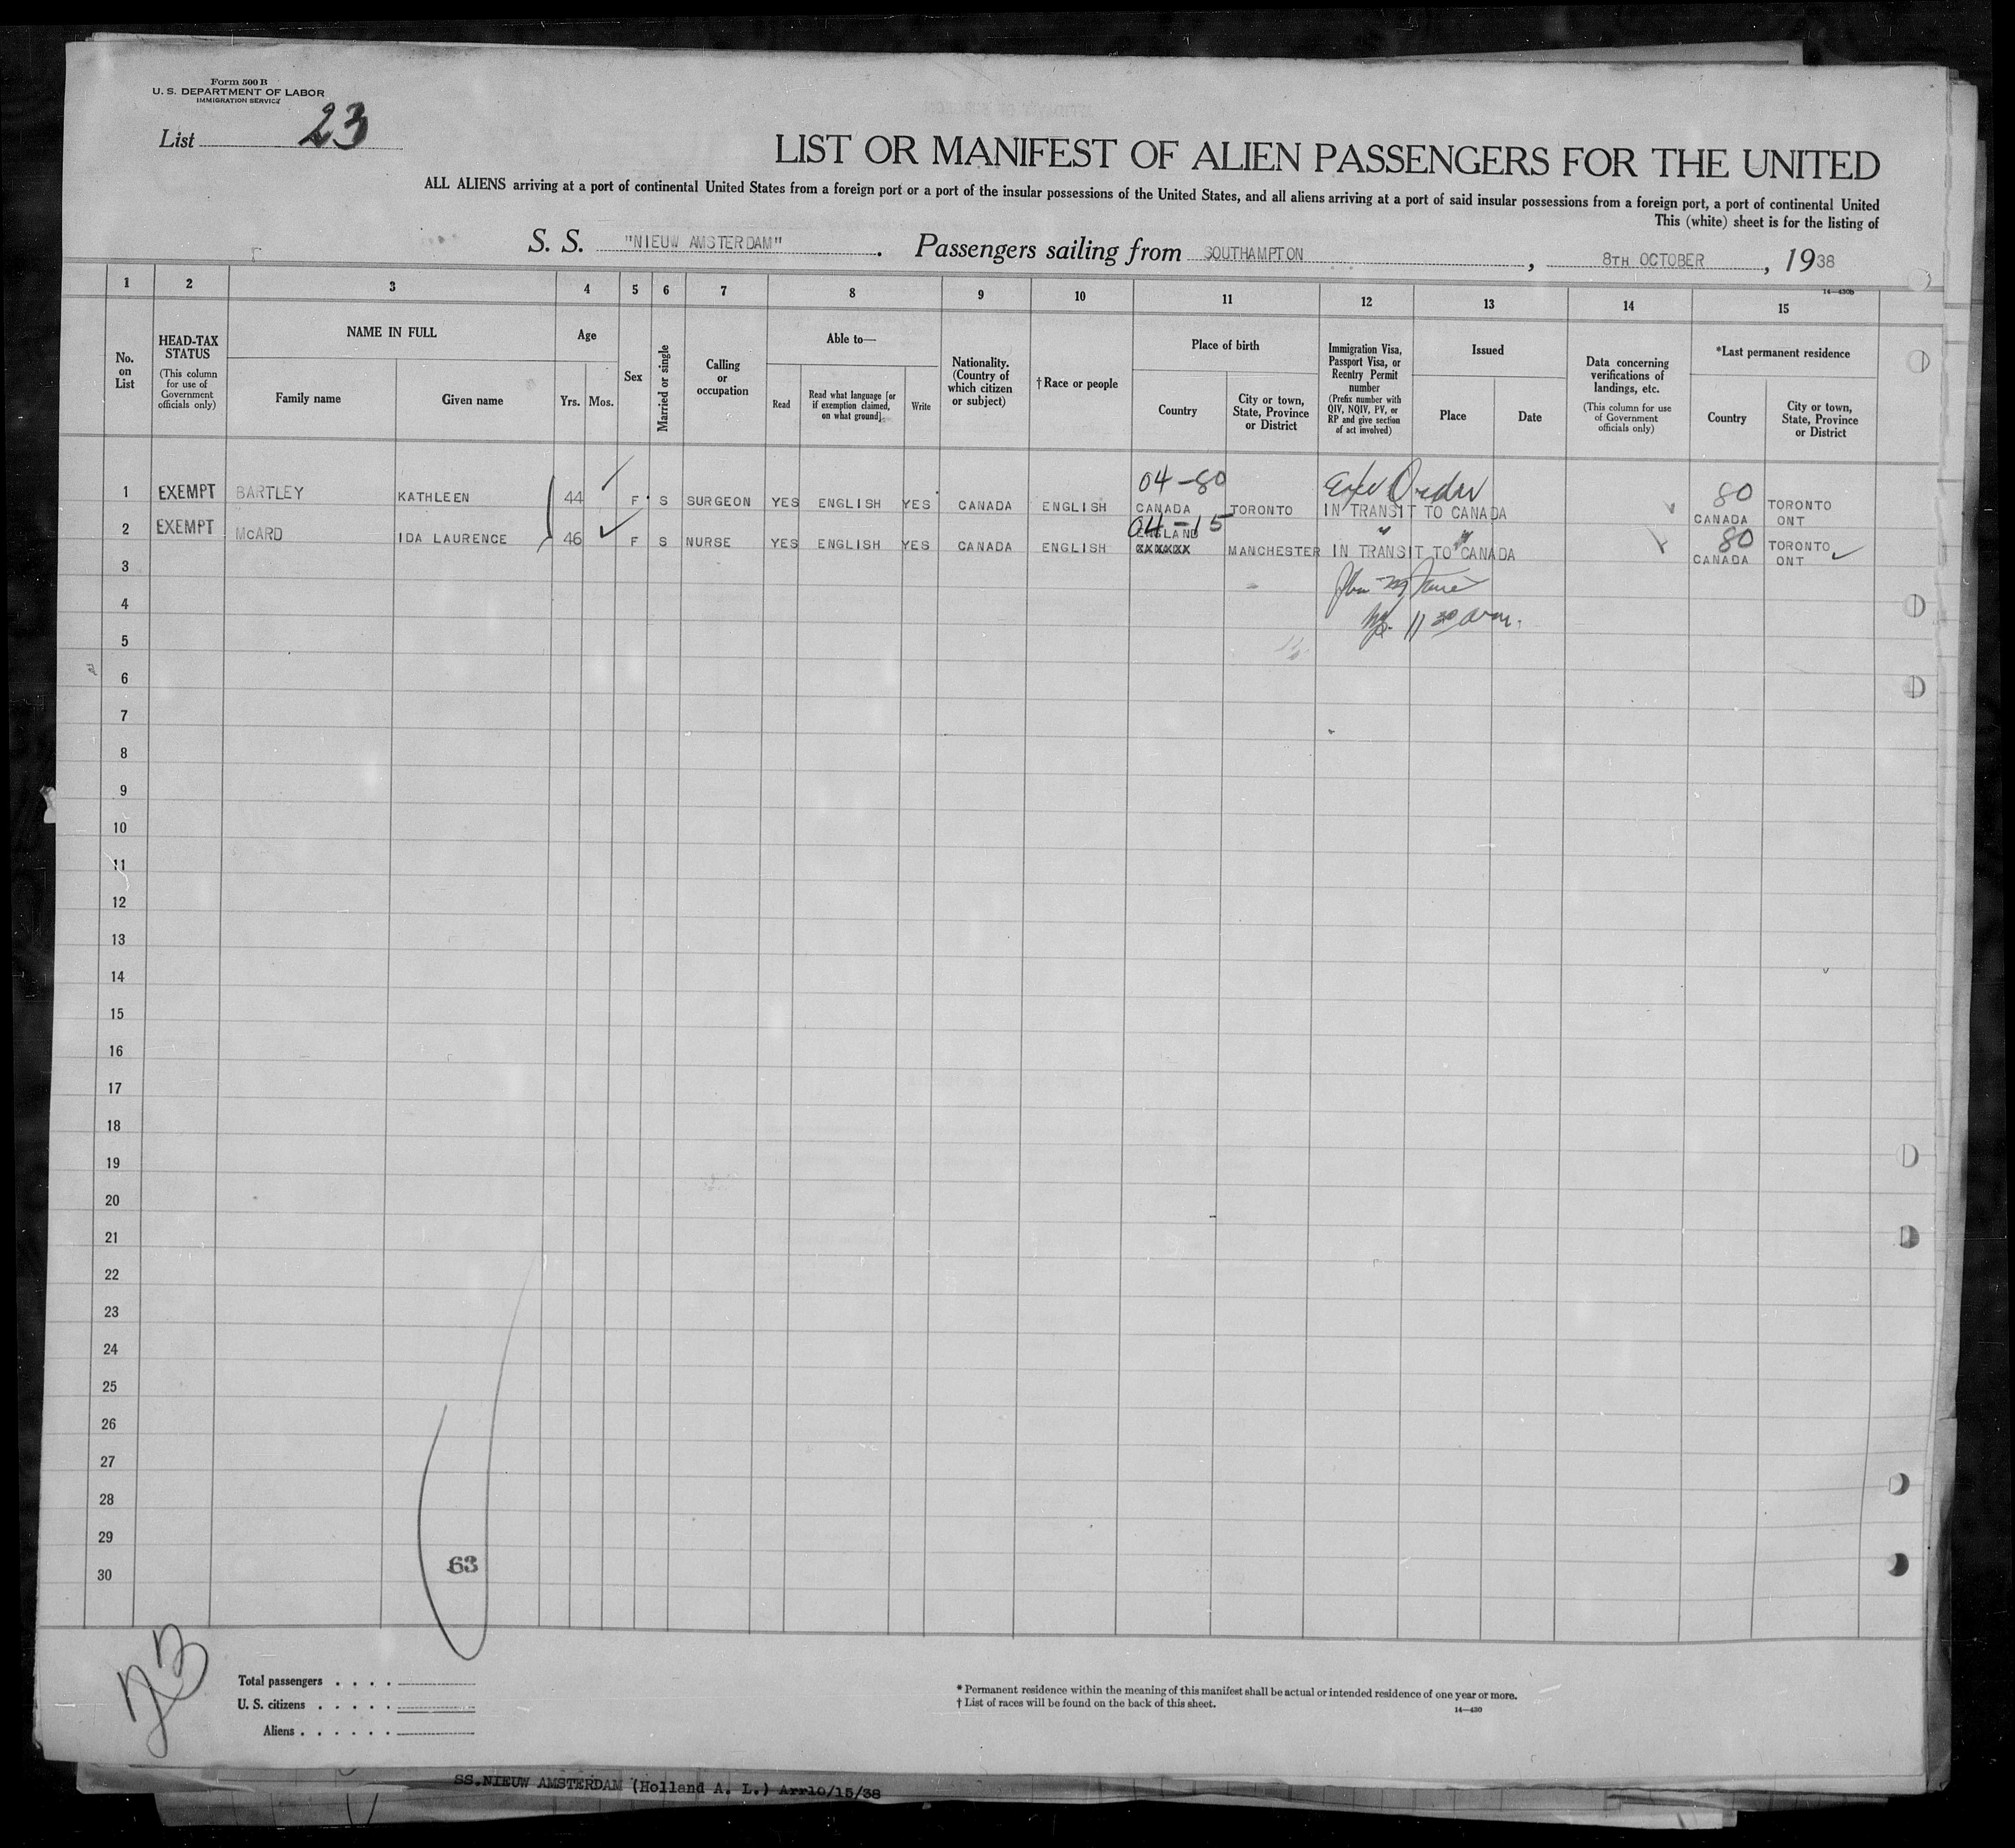 Form 500 B
U. S. DEPARTMENT OF LABOR
IMMIGRATION SERVICE
List 23
LIST OR MANIFEST OF ALIEN PASSENGERS FOR THE UNITED
ALL ALIENS arriving at a port of continental United States from a foreign port or a port of the insular possessions of the United States, and all aliens arriving at a port of said insular possessions from a foreign port, a port of continental United
This (white) sheet is for the listing of
S. S. "NIEUW AMSTERDAM". Passengers sailing from SOUTHAMPTON, 8TH OCTOBER, 1938
1 2 3 4 5 6 7 8 9 10 11 12 13 14 15
14—430b
No. on List
HEAD-TAX STATUS
(This column for use of Government officials only)
NAME IN FULL
Family name
Given name
Age
Yrs.
Mos.
Sex
Married or single
Calling or occupation
Able to—
Read
Read what language [or if exemption claimed, on what ground].
Write
Nationality. (Country of which citizen or subject)
† Race or people
Place of birth
Country
City or town, State, Province or District
Immigration Visa, Passport Visa, or Reentry Permit number
(Prefix number with QIV, NQIV, PV, or RP and give section of act involved)
Issued
Place
Date
Data concerning verifications of landings, etc.
(This column for use of Government officials only)
*Last permanent residence
Country
City or town, State, Province or District
04-80 80
1 EXEMPT BARTLEY KATHLEEN 44 F S SURGEON YES ENGLISH YES CANADA ENGLISH CANADA TORONTO IN TRANSIT TO CANADA CANADA TORONTO ONT
04-15 80
2 EXEMPT McARD IDA LAURENCE 46 F S NURSE YES ENGLISH YES CANADA ENGLISH ENGLAND XXXXXX MANCHESTER IN TRANSIT TO CANADA CANADA TORONTO ONT
3
4
11 30 am.
5
6
7
8
9
10
11
12
13
14
15
16
17
18
19
20
21
22
23
24
25
26
27
28
29
63
30
Total passengers . . . .
U. S. citizens . . . . .
Aliens . . . . . .
* Permanent residence within the meaning of this manifest shall be actual or intended residence of one year or more.
† List of races will be found on the back of this sheet.
14—430
SS.NIEUW AMSTERDAM (Holland A. L.) Arr10/15/38